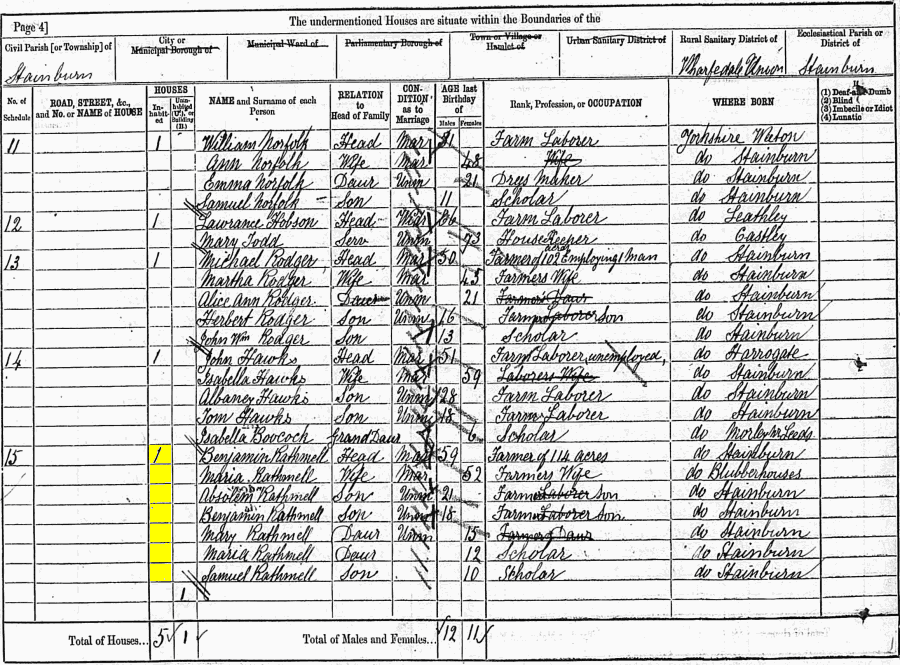 Page 4] The undermentioned Houses are situate within the Boundaries of the
Civil Parish [or Township] of City or Municipal Borough of Municipal Ward of Parliamentary Borough of Town or Village or Hamlet of Urban Sanitary District of Rural Sanitary District of Ecclesiastical Parish or District of
Stainburn Wharfedale Union Stainburn
No. of Schedule ROAD, STREET, &c., and No. or NAME of HOUSE HOUSES In-habit-ed Unin-habited (U.), or Building (B.) NAME and Surname of each Person RELATION to Head of Family CON-DITION as to Marriage AGE last Birthday of Males Females Rank, Profession, or OCCUPATION WHERE BORN (1) Deaf-and-Dumb (2) Blind (3) Imbecile or Idiot (4) Lunatic
11 1 William Norfolk Head Mar Farm Laborer Yorkshire Weeton
Ann Norfolk Wife Mar 48 Wife do Stainburn
Emma Norfolk Daur Unm 21 Dress Maker do Stainburn
Samuel Norfolk Son 11 Scholar do Stainburn
12 1 Lawrance Hobson Head 86 Farm Laborer do Leathley
Mary Todd Serv Unm House Keeper do Castley
13 1 Michael Rodger Head Mar 50 Farmer of 102 acres Employing 1 Man do Stainburn
Martha Rodger Wife Mar 45 Farmers Wife do Stainburn
Alice Ann Rodger Daur Unm 21 Farmers Daur do Stainburn
Herbert Rodger Son Unm 16 Farm Laborer Son do Stainburn
John Wm Rodger Son 13 Scholar do Stainburn
14 1 John Hawks Head Mar 51 Farm Laborer, unemployed, do Harrogate
Isabella Hawks Wife Mar 59 Laborers Wife do Stainburn
Albaney Hawks Son Unm 28 Farm Laborer do Stainburn
Tom Hawks Son Unm 18 Farm Laborer do Stainburn
Isabella Boocock Grand Daur 6 Scholar do Morley Nr Leeds
15 1 Benjamin Rathmell Head Mar 59 Farmer of 114 acres do Stainburn
Maria Rathmell Wife Mar 52 Farmers Wife do Blubberhouses
Absolem Rathmell Son Unm 21 Farm Laborer Son do Stainburn
Benjamin Rathmell Son Unm 18 Farm Laborer Son do Stainburn
Mary Rathmell Daur Unm 15 Farmers Daur do Stainburn
Maria Rathmell Daur 12 Scholar do Stainburn
Samuel Rathmell Son 10 Scholar do Stainburn
1
Total of Houses... 5 1 Total of Males and Females... 12 11